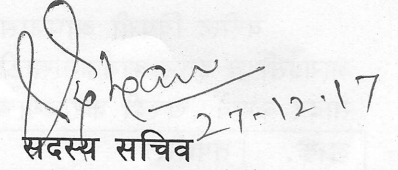 27-12-17
सदस्य सचिव